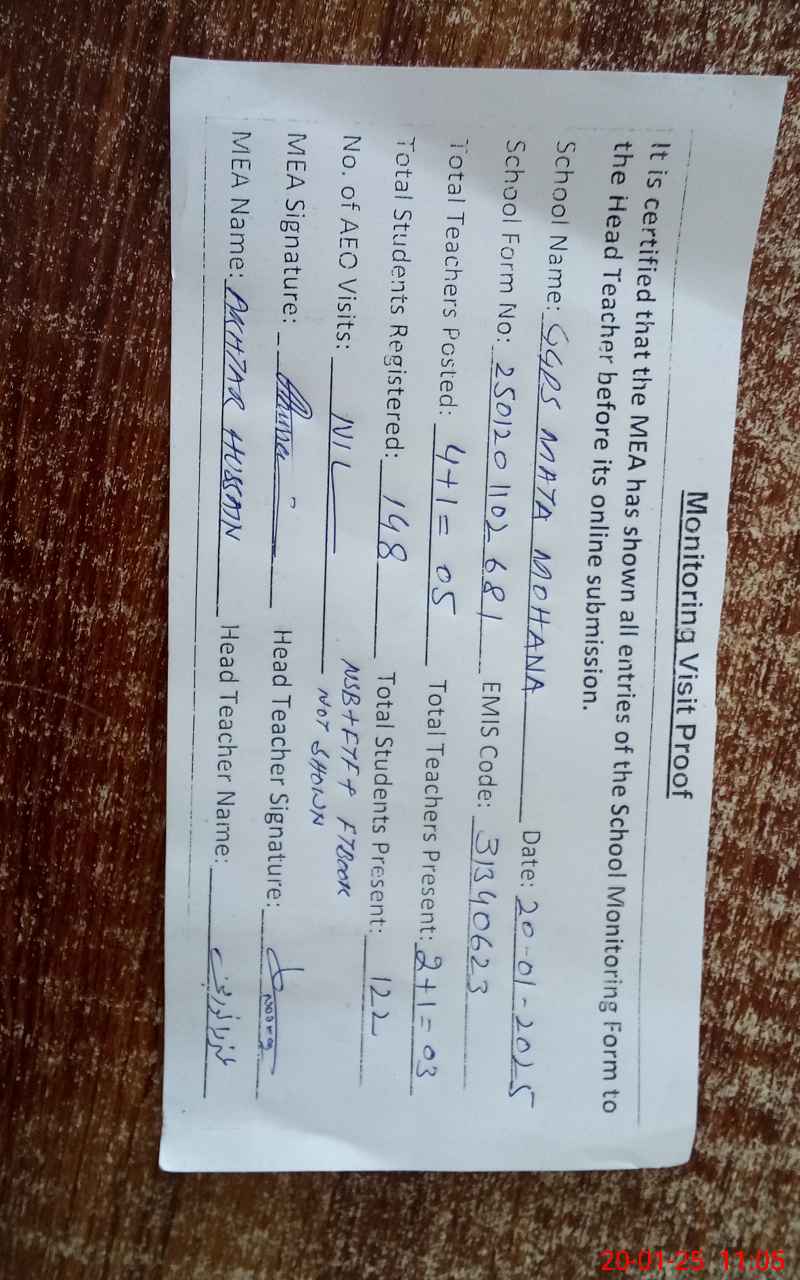 Monitoring Visit Proof
It is certified that the MEA has shown all entries of the School Monitoring Form to
the Head Teacher before its online submission.
School Name: GGPS MATA MOHANA Date: 20-01-2025
School Form No: 250120 1102 681 EMIS Code: 31340623
Total Teachers Posted: 4+1= 05 Total Teachers Present: 2+1= 03
Total Students Registered: 148 Total Students Present: 122
No. of AEO Visits: NIL NSB+FTF+ FTBOOK
NOT SHOWN
MEA Signature: Head Teacher Signature:
MEA Name: AKHTAR HUSSAIN Head Teacher Name:
20-01-25 11:05